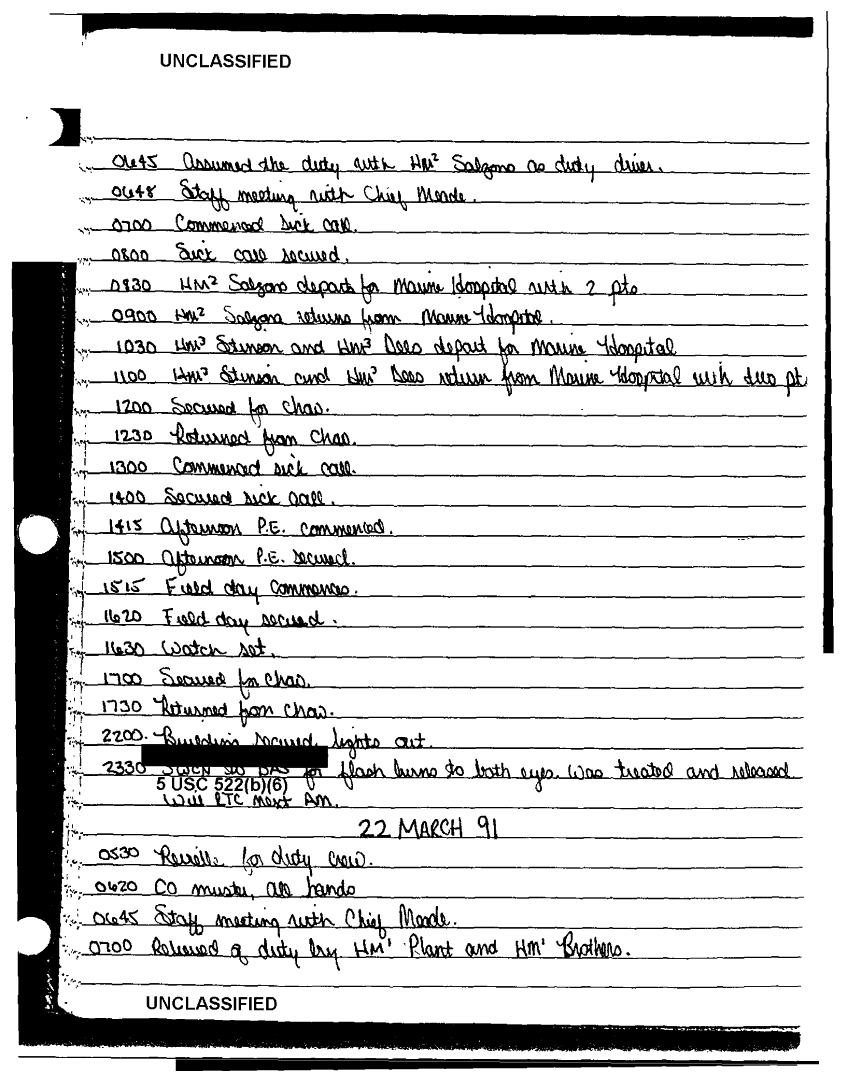 UNCLASSIFIED
0645 Assumed the duty with HM² Salzano as duty driver.
0648 Staff meeting with Chief Meade.
0700 Commenced sick call.
0800 Sick call secured.
0830 HM² Salzano departs for Marine Hospital with 2 pts
0900 HM² Salzano returns from Marine Hospital.
1030 HM³ Stinson and HM³ Dees depart for Marine Hospital
1100 HM³ Stinson and HM³ Dees return from Marine Hospital with two pt
1200 Secured for chao.
1230 Returned from Chao.
1300 Commenced sick call.
1400 Secured sick call.
1415 Afternoon P.E. commenced.
1500 Afternoon P.E. secured.
1515 Field day Commences.
1620 Field day secured.
1630 Watch set.
1700 Secured for Chao.
1730 Returned from Chow.
2200. Building secured, lights out.
2330 for flash burns to both eyes. Was treated and released
5 USC 522(b)(6)
Will RTC next Am.
22 MARCH 91
0530 Reveille for duty crew.
0620 CO muster, all hands
0645 Staff meeting with Chief Meade.
0700 Relieved of duty by HM¹ Plant and HM¹ Brothers.
UNCLASSIFIED